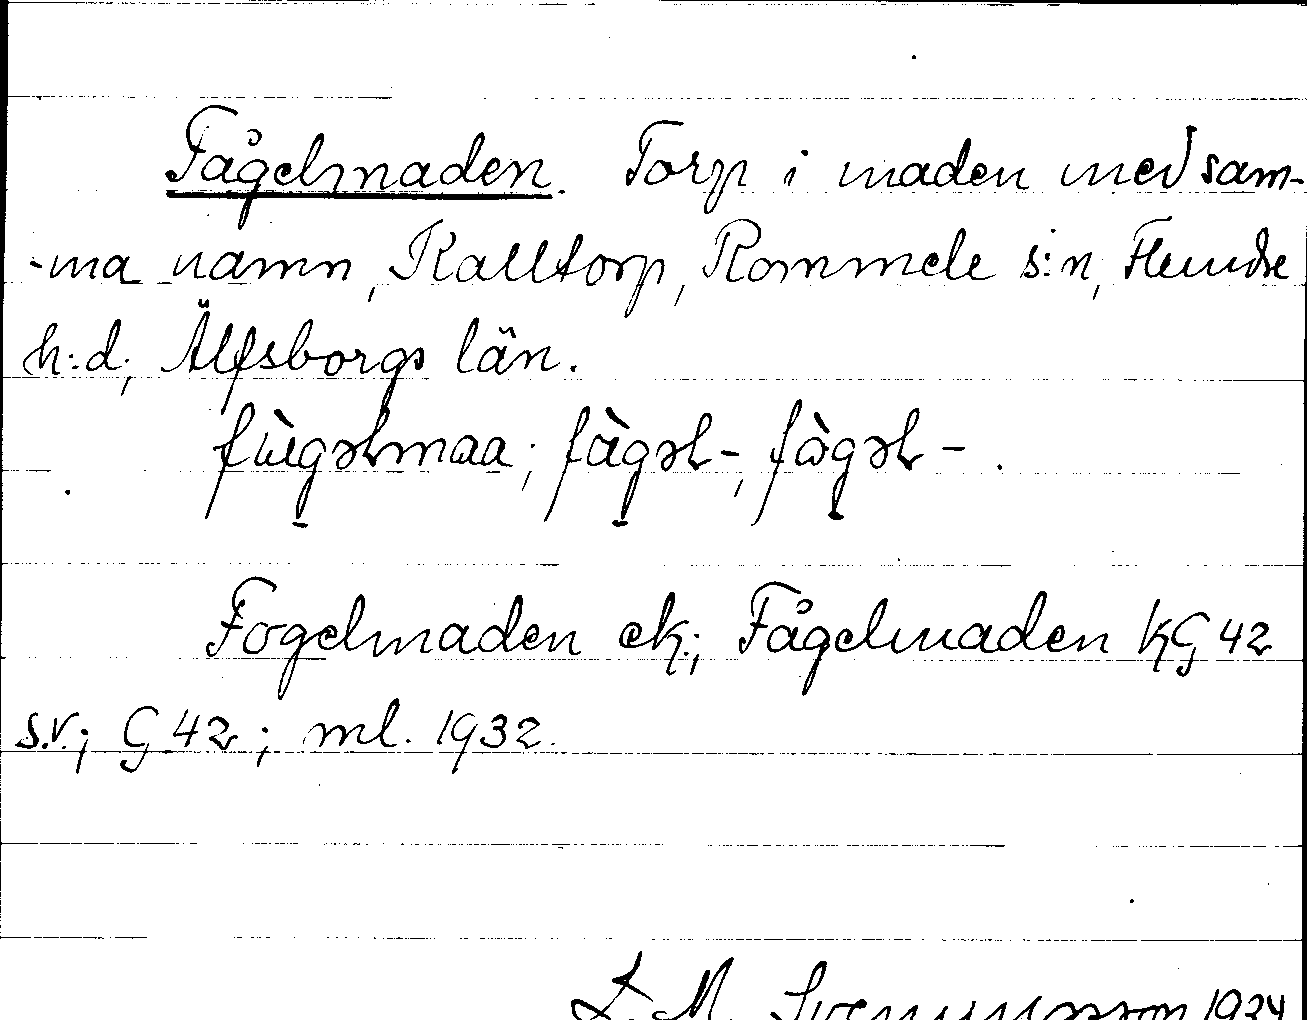 Fågelmaden. Torp i maden med sam-
-ma namn, Kalltorp, Rommele s:n, Flundre
h:d, Älfsborgs län.
fùgəlmaa; fàgəl-; fògəl-.
Fogelmaden ek.; Fågelmaden KG 42
s.v.; G 42; ml. 1932.
1934